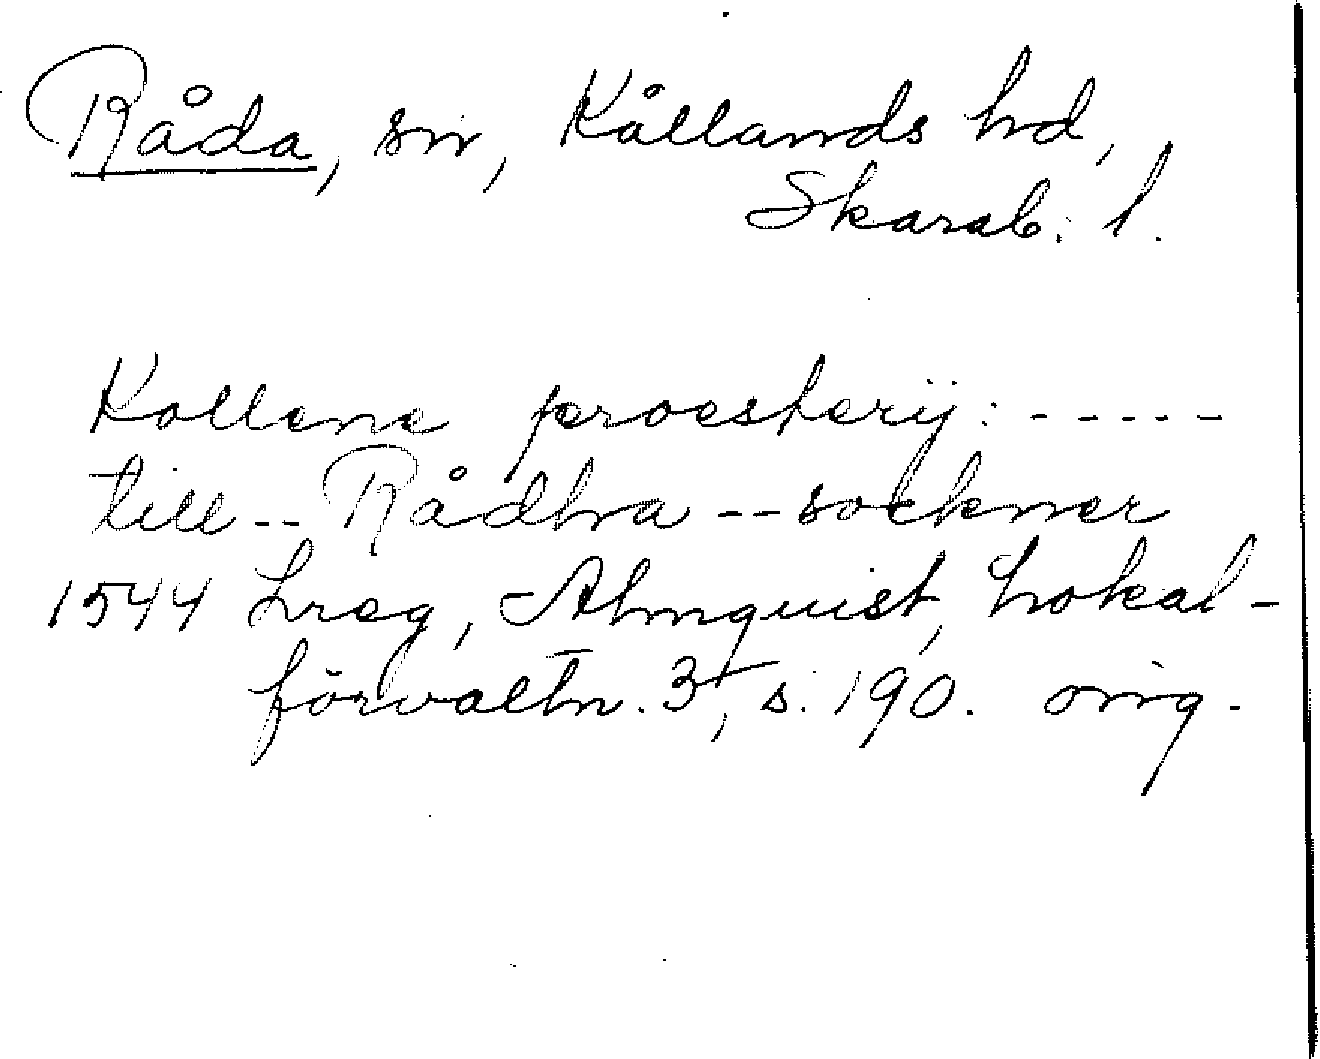 Råda, sn, Kållands hd,
Skarab. l.
Kollene proesterij: -----
till -- Rådha -- sockner
1544 Lreg, Almquist, Lokal-
förvaltn. 3, s. 190. orig.